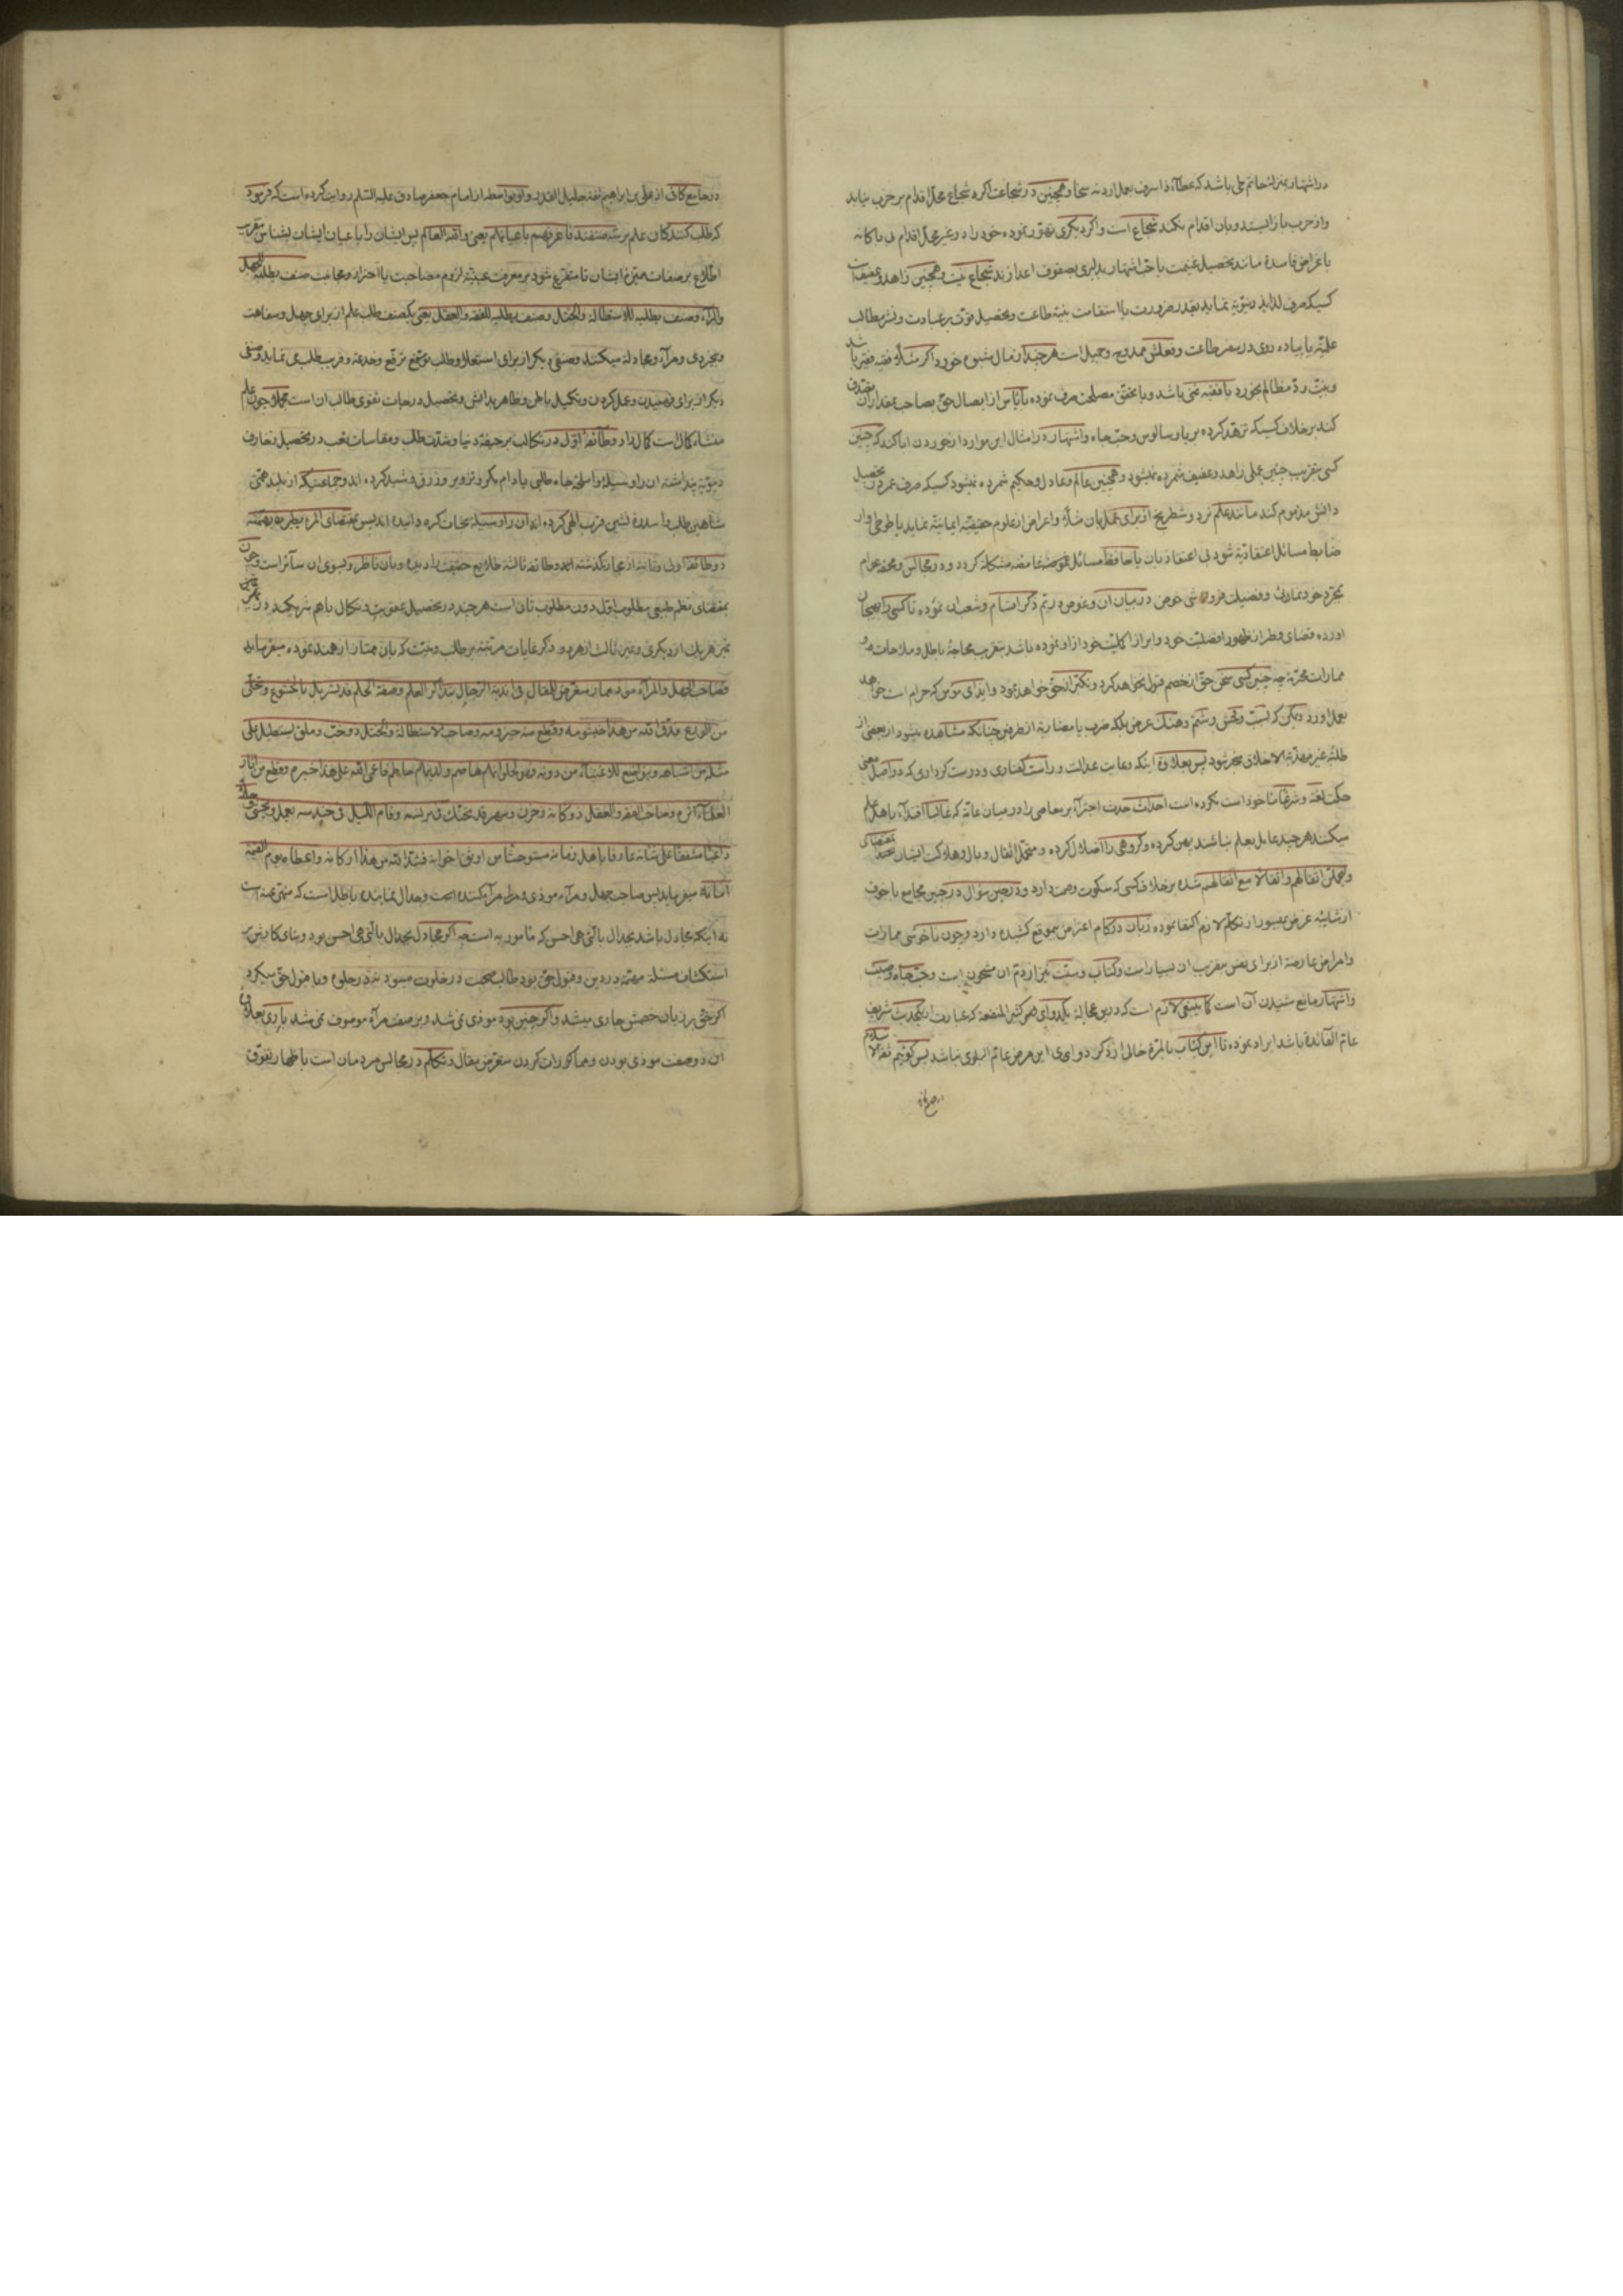 در اشتهار بمنزلهٔ حاتم طی باشد که عطاء ذا سرف بعمل اورد نه سخا و همچنین در شجاعت اگر نه شجاع محل اقدام بر حرب نیابد
و از حرب باز ایستد و بان اقدام نکند شجاع است و اگر دیگری تهور نموده خود را در غیر محل اقدام بی باکانه
باغراض فاسده مانند تحصیل غنیمت یا حب اشتهار بدلیری بصفوف اعدا زند شجاع نیست و همچنین زاهد و عفیف است
کسیکه صرف لذایذ دنیویه نماید بقدر ضرورت با استقامت بنیة طاعت و تحصیل قوت بر عبادت و نشر مطالب
علمیه یا پیاده روی در سفر طاعت و فعلش ممدوح و جمیل است هر چند از مال مشبوه خورد اگر مثلا فقیه فقیر باشد
و بنیت رد مظالم بخورد یا فقیه غنی باشد و با تحقق مصلحت صرف نموده تا یاس از ایصال حق بصاحب بمقدار ان تصدق
کند بر خلاف کسیکه تزهد کرده بریا و سالوس و حب جاه و اشتهار در امثال این موارد از خوردن ابا کند که چنین
کسی بتقریب چنین عملی زاهد و عفیف شمرده نمیشود و همچنین عالم و عادل و حکیم شمرده نمیشود کسیکه صرف عمر در تحصیل
دانش مذموم کند مانند علم نرد و شطرنج از برای عمل بان مثلا و اعراض از علوم حقیقیه ایمانیه نماید یا طوطی وار
ضابط مسائل اعتقادیه شود بی اعتقاد بان یا حافظ مسائل غامضه مشکله گردد و در مجالس و محفه عوام
بمجرد خودنمائی و فضیلت فروشی خوض در بیان ان و غوص در یم ذکر اقسام و شعب ان نموده تا کسی را بهیجان
اورده فضای قطر از ظهور افضلیت خود و ابراز اکملیت خود از او نموده باشد بتقریب محاجهٔ باطل و ملاحات و
ممارات محرمه چه چنین کسی سخن حق از خصم قبول نخواهد کرد و تکبر از حق خواهد نمود و ایذای مؤمن که حرام است خواهد
بعمل اورد دیگر که سب و فحش و شتم و هتک عرض بلکه ضرب یا مضاربه از طرفین چنانکه مشاهده میشود از بعضی از
طلبهٔ غیر مهذبة الاخلاق منجر شود پس بعلاوهٔ اینکه رعایت عدالت و راست گفتاری و درست کرداری که در اصل معنی
حکمت لغة و شرعا ماخوذ است نکرده است احداث حدث اجتراء بر معاصی را در میان عامه که غالبا اقتداء باهل علم
میکنند هر چند عامل بعلم نباشند پهن کرده و گروهی را اضلال کرده و متحمل اثقال و بال و هلاکت ایشان بمقتضای
ولیحملن اثقالهم و اثقالا مع اثقالهم شده بر خلاف کسی که سکوت و صمت دارد و در حین سؤال در چنین مجامع با خوف
از شائبهٔ غرض بمیسور از تکلم لازم اکتفا نموده زبان در کام اعتراض بموقع کشیده دارد و چون ناخوشی ممارات
و امراض عارضه از برای نفس بتقریب ان بسیار است و کتاب و سنت نیز از ذم ان مشحون است و حب جاه و صیت
و اشتهار مانع شنیدن آن است کما ینبغی لازم است که درین عجاله یکدوای مهم کثیر المنفعه که عبارت از یکحدیث شریف
عام الفائده باشد ایراد نموده تا این کتاب بالمرة خالی از ذکر دوای این مرض عام البلوی نباشد پس گوئیم ثقة الاسلام
در جامع کافی از علی بن ابراهیم ثقه جلیل القدر از امام جعفر صادق علیه السلم روایت کرده است که فرمود
که طلب کنندگان علم بر سه صنفند فاعرفهم باعیانهم یعنی واقف العالم پس ایشان را باعیان ایشان بشناس بتقریب
اطلاع بر صفات متمیزه ایشان تا متفرع شود بر معرفت عینیه لزوم مصاحبت یا احتراز و مجانبت صنف یطلبه للجهل
والمراء و صنف یطلبه للاستطالة والختل و صنف یطلبه للفقه والعقل یعنی یکصنف طلب علم از برای جهل و سفاهت
و بیخردی و مراء و مجادله میکنند و صنفی دیگر از برای استعلا و طلب توقع ترفع و خدعه و فریب طلب می نماید و صنفی
دیگر از برای فهمیدن و عمل کردن و تکمیل باطن و ظاهر بدانش و تحصیل درجات تقوی طالب ان است و چون علم
منشاء کمال است کمال زاد و طائفهٔ اول در تکالب بر جیفهٔ دنیا و شدت طلب و مقاسات تعب در تحصیل زخارف
دنیویه پنداشته ان را وسیله و اسلحهٔ جاه طلبی یا دام مکر و تزویر و زرق و شید کرده اند و جماعتیکه از بلند همتی
شاهین طلب را سدره نشین قرب الهی کرده اند ان را وسیلهٔ نجات کرده و دانیده اند پس بمقتضای المرء یطیر بهمته
دو طائفه اولی و ثانیه از مجاز نگذشته اند و طائفهٔ ثالثه طلایع حقیقت را دیده و بان ناظر و بسوی ان سائر است و چون
بمقتضای نظم طبیعی مطلوب اول دون مطلوب ثان است هر چند در تحصیل عقوبت و نکال باهم شریکند در
تمیز هر یک از دیگری و تمیز ثالث از هر دو و ذکر غایات مرتبه بر طلب و نیت که بان ممتاز از همند نموده میفرماید
فصاحب الجهل والمراء موذ ممار متعرض للمقال فی اندیة الرجال بتذاکر العلم و صفة الحلم قد تسربل بالخشوع و تخلی
من الورع فدق الله من هذا خیشومه و قطع منه حیزومه و صاحب الاستطالة والختل ذو خب و ملق یستطیل علی
مثله من اشباهه و یتواضع للاغنیاء من دونه فهو لحلوائهم هاضم و لدینهم حاطم فاعمی الله علی هذا خبره و قطع من اثار
العلماء اثره و صاحب الفقه والعقل ذو کابة و حزن و سهر قد تحنک فی برنسه و قام اللیل فی حندسه یعمل و یخشی وجلا
داعیا مشفقا علی شانه عارفا باهل زمانه مستوحشا من اوثق اخوانه فشد الله من هذا ارکانه و اعطاه یوم القیمة
امانه میفرماید پس صاحب جهل و مراء موذی و مراء کننده است و جدال نماینده باطل است که منهی عنه است
نه اینکه مجادل باشد بجدال بالتی هی احسن که مامور به است چه اگر مجادل بجدال بالتی هی احسن بود و بنای کارش بر
استکشاف مسئله مهمه در دین و قبول حق بود طالب صحبت در خلوت میبود نه در جلوه و با قبول حق میکرد
اگر حق بر زبان خصمش جاری میشد و اگر چنین بود موذی نمی شد و بر صفت مراء موصوف نمی شد باری بعلاوهٔ
این دو صفت موذی بودن و مماکرات کردن متعرض مقال و تکلم در مجالس مردمان است باظهار تفوق